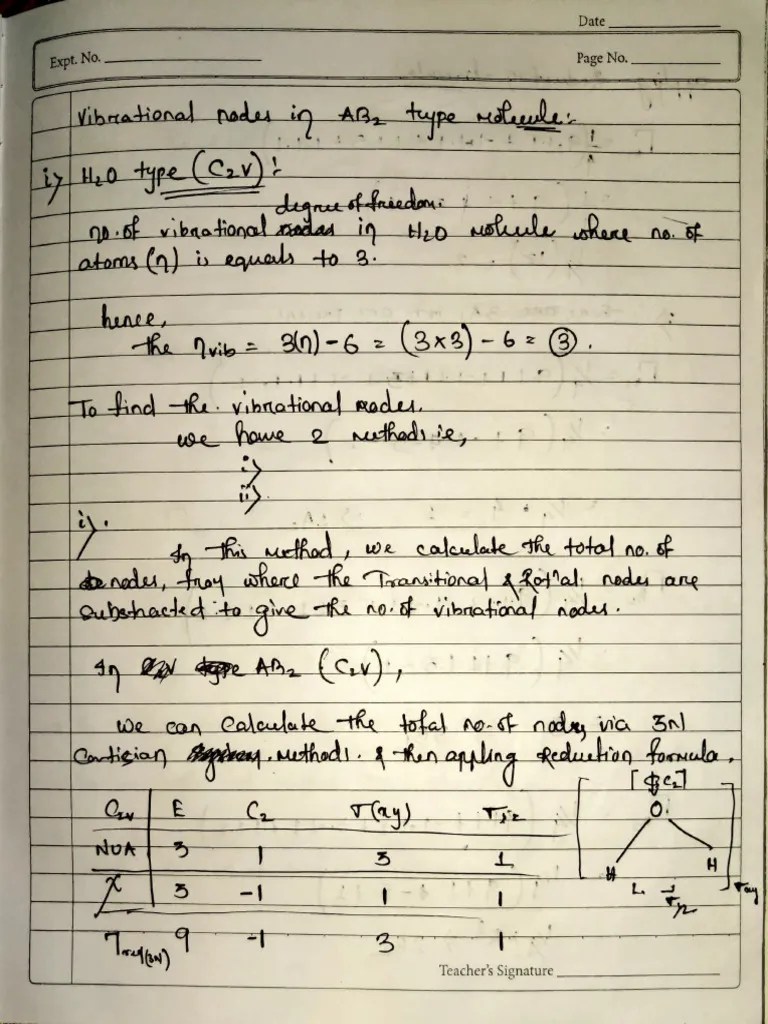 Date
Expt. No.
Page No.
Vibrational nodes in AB₂ type molecule:-
i) H₂O type (C₂v):
degree of freedom:
no. of vibrational in H₂O molecule where no. of
atoms (n) is equals to 3.
hence,
the ηvib = 3(n) - 6 = (3×3) - 6 = ③.
To find the vibrational modes.
we have 2 methods ie,
i)
ii)
i).
In this method, we calculate the total no. of
nodes, where the Transitional & Rotⁿal nodes are
substracted to give the no. of vibrational nodes.
In AB₂ (C₂v),
we can calculate the total no. of nodes via 3n
Cartisian methods. & then appling reduction formula.
C₂v E C₂ σ(xy) σyz
[C₂]
O
NUA 3 1 3 1
H H
χ 3 -1 1 1
σyz σxy
Γred(3N) 9 -1 3 1
Teacher's Signature